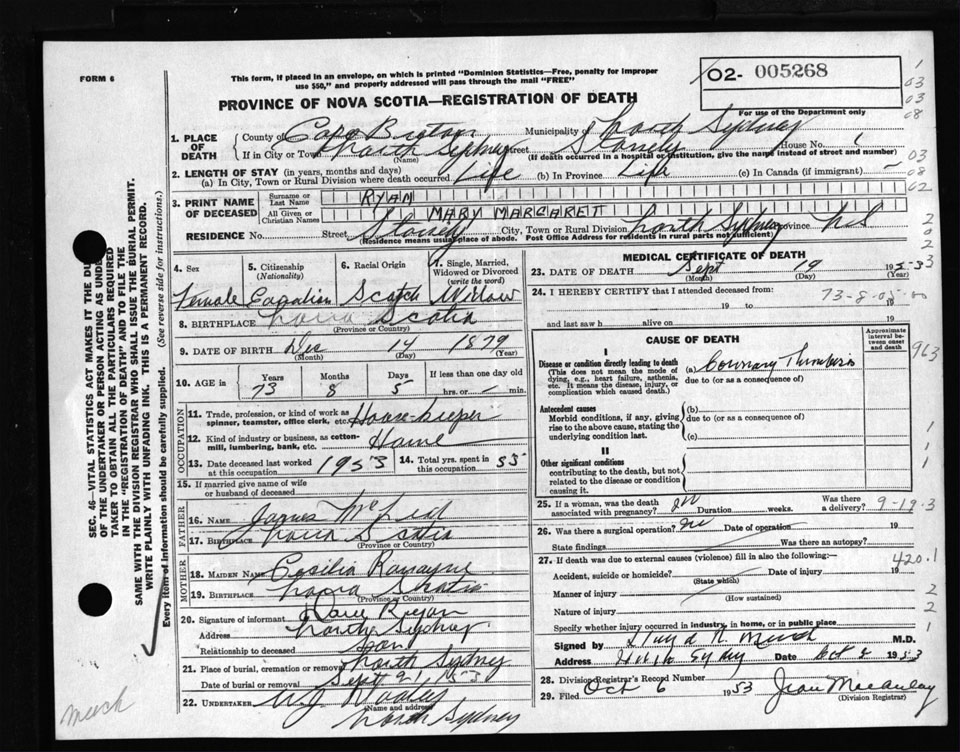 FORM 6
This form, if placed in an envelope, on which is printed "Dominion Statistics—Free, penalty for improper
use $50," and properly addressed will pass through the mail "FREE"
O2- 005268
For use of the Department only
PROVINCE OF NOVA SCOTIA—REGISTRATION OF DEATH
1. PLACE OF DEATH
County of Cape Breton Municipality of North Sydney
If in City or Town North Sydney Street House No.
(Name) (If death occurred in a hospital or institution, give the name instead of street and number)
2. LENGTH OF STAY (in years, months and days)
(a) In City, Town or Rural Division where death occurred Life (b) In Province Life (c) In Canada (if immigrant)
3. PRINT NAME OF DECEASED
Surname or Last Name RYAN
All Given or Christian Names MARY MARGARET
RESIDENCE No. Street City, Town or Rural Division North Sydney Province N S
(Residence means usual place of abode. Post Office Address for residents in rural parts not sufficient)
4. Sex
Female
5. Citizenship (Nationality)
Canadian
6. Racial Origin
Scotch
7. Single, Married, Widowed or Divorced (write the word)
Widow
8. BIRTHPLACE Nova Scotia
(Province or Country)
9. DATE OF BIRTH Dec 14 1879
(Month) (Day) (Year)
10. AGE in Years Months Days If less than one day old
73 8 5 hrs. or min.
OCCUPATION
11. Trade, profession, or kind of work as spinner, teamster, office clerk, etc. House-keeper
12. Kind of industry or business, as cotton-mill, lumbering, bank, etc. Home
13. Date deceased last worked at this occupation 1953
14. Total yrs. spent in this occupation 55
15. If married give name of wife or husband of deceased
FATHER
16. Name James
17. Birthplace Nova Scotia
(Province or Country)
MOTHER
18. Maiden Name
19. Birthplace Nova Scotia
(Province or Country)
20. Signature of informant Ryan
Address North Sydney
Relationship to deceased Son
21. Place of burial, cremation or removal North Sydney
Date of burial or removal Sept 21 1953
22. UNDERTAKER
(Name and address)
North Sydney
MEDICAL CERTIFICATE OF DEATH
23. DATE OF DEATH Sept 19 1953
(Month) (Day) (Year)
24. I HEREBY CERTIFY that I attended deceased from:
73-8-05-00
19 to 19
and last saw h alive on 19
CAUSE OF DEATH
Approximate interval between onset and death
I
Disease or condition directly leading to death
(This does not mean the mode of dying, e.g., heart failure, asthenia, etc. It means the disease, injury, or complication which caused death.)
(a) Coronary Thrombosis
due to (or as a consequence of)
Antecedent causes
Morbid conditions, if any, giving rise to the above cause, stating the underlying condition last.
(b)
due to (or as a consequence of)
(c)
II
Other significant conditions
contributing to the death, but not related to the disease or condition causing it.
25. If a woman, was the death associated with pregnancy? no Duration weeks. Was there a delivery?
9-19-3
26. Was there a surgical operation? no Date of operation 19
State findings Was there an autopsy?
27. If death was due to external causes (violence) fill in also the following:—
420.1
Accident, suicide or homicide? Date of injury 19
(State which)
Manner of injury
(How sustained)
Nature of injury
Specify whether injury occurred in industry, in home, or in public place
Signed by M.D.
Address Sydney Date Oct 1953
28. Division Registrar's Record Number
29. Filed Oct 6 1953 Jean Macaulay
(Division Registrar)
SEC. 46—VITAL STATISTICS ACT MAKES IT THE DUTY
OF THE UNDERTAKER OR PERSON ACTING AS UNDER-
TAKER TO OBTAIN ALL THE PARTICULARS REQUIRED
IN THE "REGISTRATION OF DEATH" AND TO FILE THE
SAME WITH THE DIVISION REGISTRAR WHO SHALL ISSUE THE BURIAL PERMIT.
WRITE PLAINLY WITH UNFADING INK. THIS IS A PERMANENT RECORD.
Every item of information should be carefully supplied. (See reverse side for instructions.)